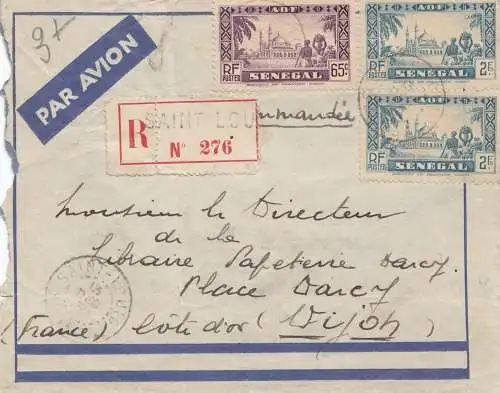 3x
PAR AVION
AOF
RF
POSTES
65c
SÉNÉGAL
AOF
RF
POSTES
2F
SÉNÉGAL
AOF
RF
POSTES
2F
SÉNÉGAL
R
SAINT LOU
N° 276
mmandée
Monsieur le Directeur
de la
Libraire Papeterie Darcy
Place Darcy
(France) Côte d'or (Dijon)
SAINT-LOUIS